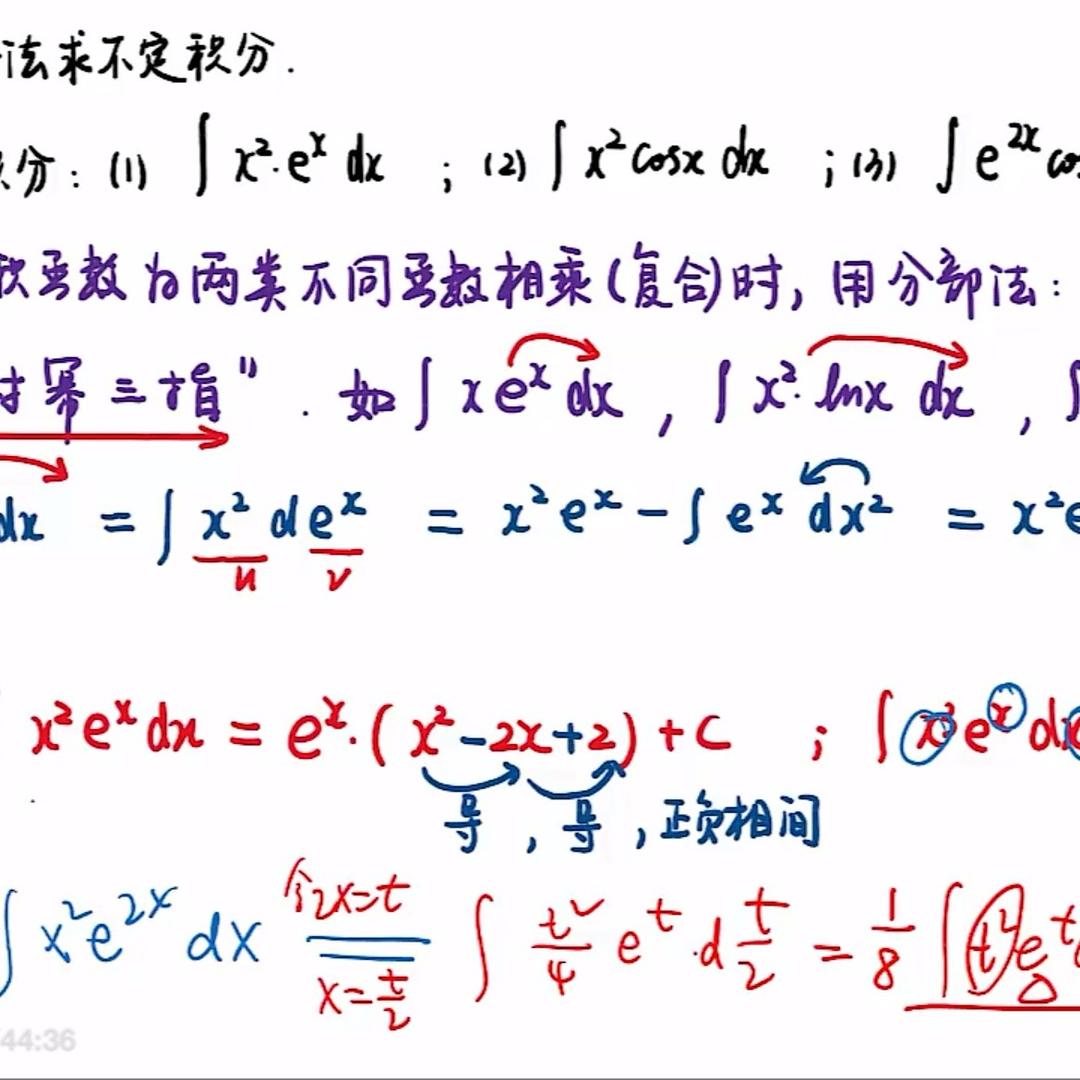 法求不定积分.
积分: (1) ∫ x²·eˣ dx ; (2) ∫ x² cosx dx ; (3) ∫ e²ˣ cos
积函数为两类不同函数相乘(复合)时, 用分部法:
对幂三指" . 如 ∫ x eˣ dx , ∫ x²·lnx dx , ∫
dx = ∫ x² deˣ = x² eˣ - ∫ eˣ dx² = x² e
u v
x² eˣ dx = eˣ·(x² - 2x + 2) + C ; ∫ x³ eˣ d
导 , 导 , 正负相间
∫ x² e²ˣ dx 令2x=t x=t/2 ∫ t²/4 eᵗ·d t/2 = 1/8 ∫ t² eᵗ
44:36